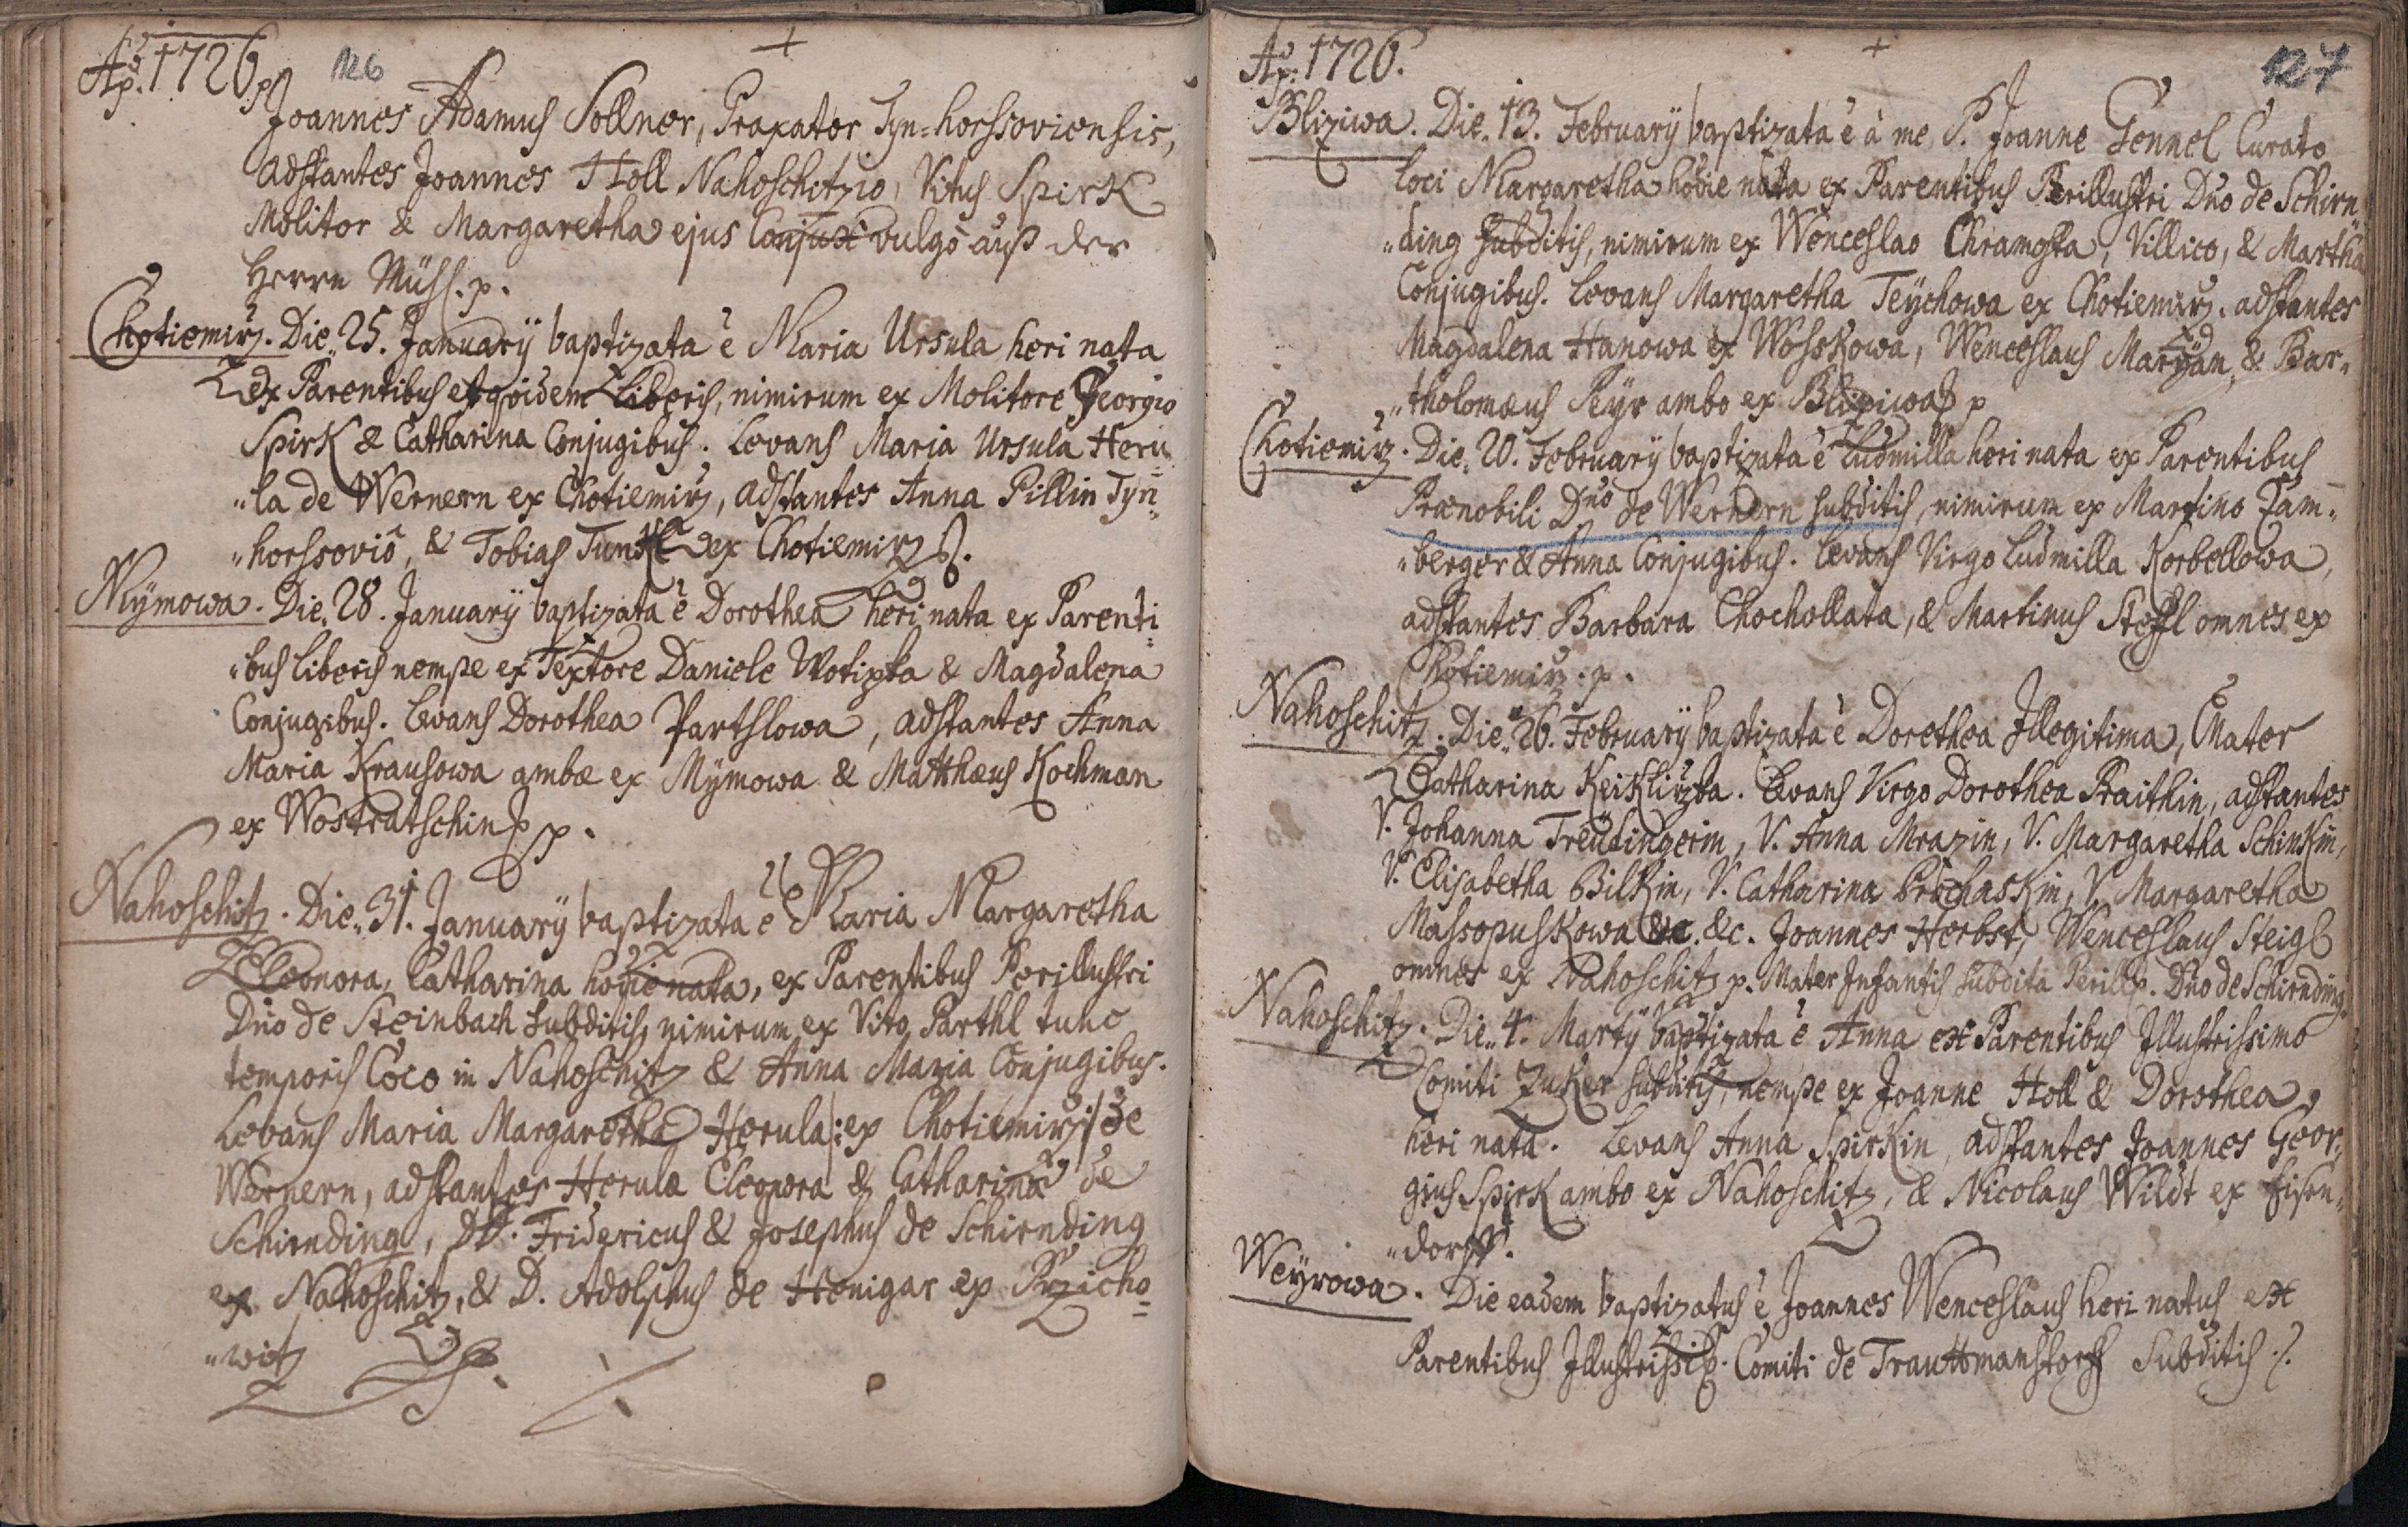 Ao: 1726. 126
Joannes Adamus Sollner, Praxator Tyn=horssoviensis,
adstantes Joannes Holl Nahoschitzio, Vitus Spirk
Molitor & Margaretha ejus Conjux vulgo auß der
Herrn Mühl. p.
Chotiemirz. Die 25. January baptizata e Maria Ursula heri nata
ex Parentibus liberis, nimirum ex Molitore Georgio
Spirk & Catharina Conjugibus. Levans Maria Ursula Heru
"la de Wernern ex Chotiemirz, adstantes Anna Pillin Tyn=
"horssovio, & Tobias ex Chotiemirz p.
Mÿmowa. Die 28. January baptizata e Dorothea heri nata ex Parenti
"bus liberis nempe ex Textore Daniele Wotipka & Magdalena
Conjugibus. Levans Dorothea Parthlowa, adstantes Anna
Maria Krausowa ambæ ex Mÿmowa & Matthæus Kochman
ex Wostratschin p.
Nahoschitz. Die 31. January baptizata e Maria Margaretha
Eleonora, Catharina hodie nata, ex Parentibus Perillustri
Dno de Steinbach subditis, nimirum ex Vito Parthl tunc
temporis Coco in Nahoschitz & Anna Maria Conjugibus.
Levans Maria Margaretha Herula |: ex Chotiemirz :| de
Wernern, adstantes Herulæ Eleonora & Catharina de
Schirnding, DD. Fridericus & Josephus de Schirnding
ex Nahoschitz, & D. Adolphus de Henigar ex Przicho=
"witz
Ao: 1726. 127
Bliziwa. Die 13. February baptizata e à me P. Joanne Gennel Curato
loci Margaretha hodie nata ex Parentibus Perillustri Dno de Schirn
"ding subditis, nimirum ex Wenceslao Chramosta, Villico, & Martha
Conjugibus. Levans Margaretha Teychowa ex Chotiemirz. adstantes
Magdalena Hanowa ex Wosskowa, Wenceslaus Marÿan, & Bar=
"tholomæus Peyr ambo ex Bliziwa p
Chotiemirz. Die 20. February baptizata e Ludmilla heri nata ex Parentibus
Prænobili Dno de Wernern subditis, nimirum ex Martino Zam=
"berger & Anna Conjugibus. Levans Virgo Ludmilla Korbellowa,
adstantes Barbara Chochollata, & Martinus Stoffl omnes ex
Chotiemirz. p.
Nahoschitz. Die 26. February baptizata e Dorethea Illegitima, Mater
Catharina Keiklirzka. Levans Virgo Dorothea Praithin, adstantes
V. Johanna Treütingerin, V. Anna Mrazin, V. Margaretha Schinkin,
V. Elisabetha Bilkin, V. Catharina Prochaskin, V. Margaretha
Massopuskowa &c. &c. Joannes Herbst, Wenceslaus Steigl
omnes ex Nahoschitz p. Mater Infantis subdita Perill. Dno de Schirnding
Nahoschitz. Die 4. Marty baptizata e Anna ex Parentibus Illustrissimo
Comiti Zuker subditis, nempe ex Joanne Holl & Dorothea,
heri nata. Levans Anna Spirkin, adstantes Joannes Geor=
gius Spirk ambo ex Nahoschitz, & Nicolaus Wildt ex Eisen=
"dorff.
Weÿrowa. Die eadem baptizatus e Joannes Wenceslaus heri natus ex
Parentibus Illustrissi. Comiti de Trauttmanstorff Subditis ./.